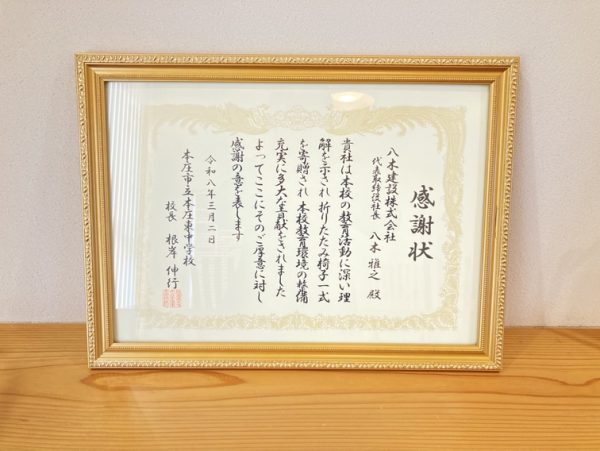 感謝状
八木建設株式会社
代表取締役社長 八木雅之 殿
貴社は本校の教育活動に深い理
解を示され 折りたたみ椅子一式
を寄贈され 本校教育環境の整備
充実に多大な貢献をされました
よってここにそのご厚意に対し
感謝の意を表します
令和八年三月二日
本庄市立本庄東中学校
校長 根岸伸行